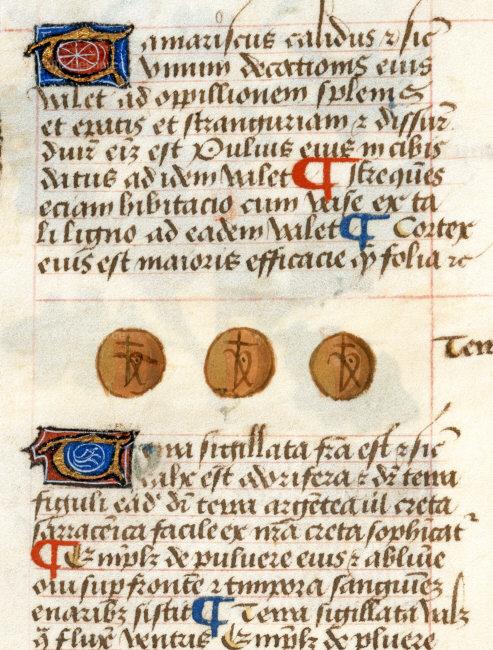 Tamariscus calidus ⁊ sic
Vinum decoctionis eius
valet ad oppillionem splenis
et epatis et stranguriam ⁊ dissur
Puluis eius in cibis
datus ad idem valet ¶ Itreques
eciam bibitacio cum vase ex ta
li ligno ad eadem valet ¶ Cortex
eius est maioris efficacie ꝙ folia ⁊c
Terr
Terra sigillata fra est ⁊ sic
valx est odorifera ⁊ dr̄ terra
figuli ead' dr̄ terra argentea ul creta
sarracenica facile ex nr̄a creta sophicat
¶ Emplr̄ de puluere eius ⁊ albuīe
oui sup fronte ⁊ timpora sanguineʒ
e naribʒ sistit ¶ Terra sigillata valʒ
fluxū ventris Emplr̄ de pluere